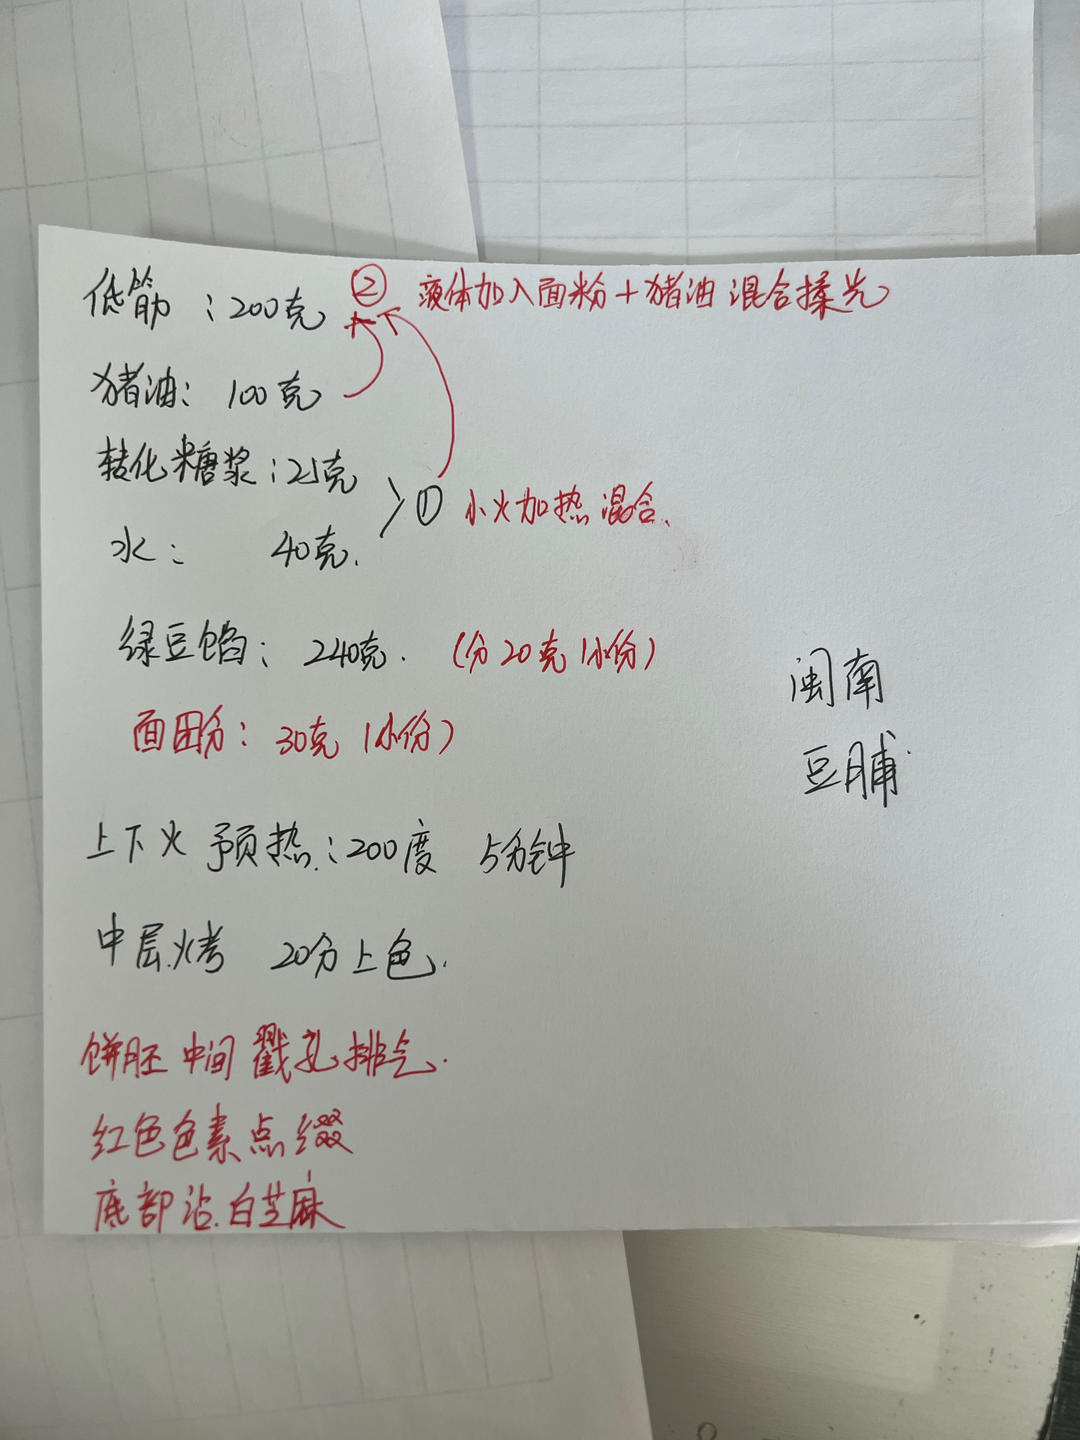 低筋：200克 ② 液体加入面粉+猪油混合揉光
猪油：100克
转化糖浆：25克
水：40克. >① 小火加热混合.
绿豆馅：240克. (分20克1小份)
面团分：30克1小份)
闽南
豆脯
上下火预热：200度 5分钟
中层烤 20分上色.
饼胚中间戳孔排气.
红色色素点缀
底部沾白芝麻